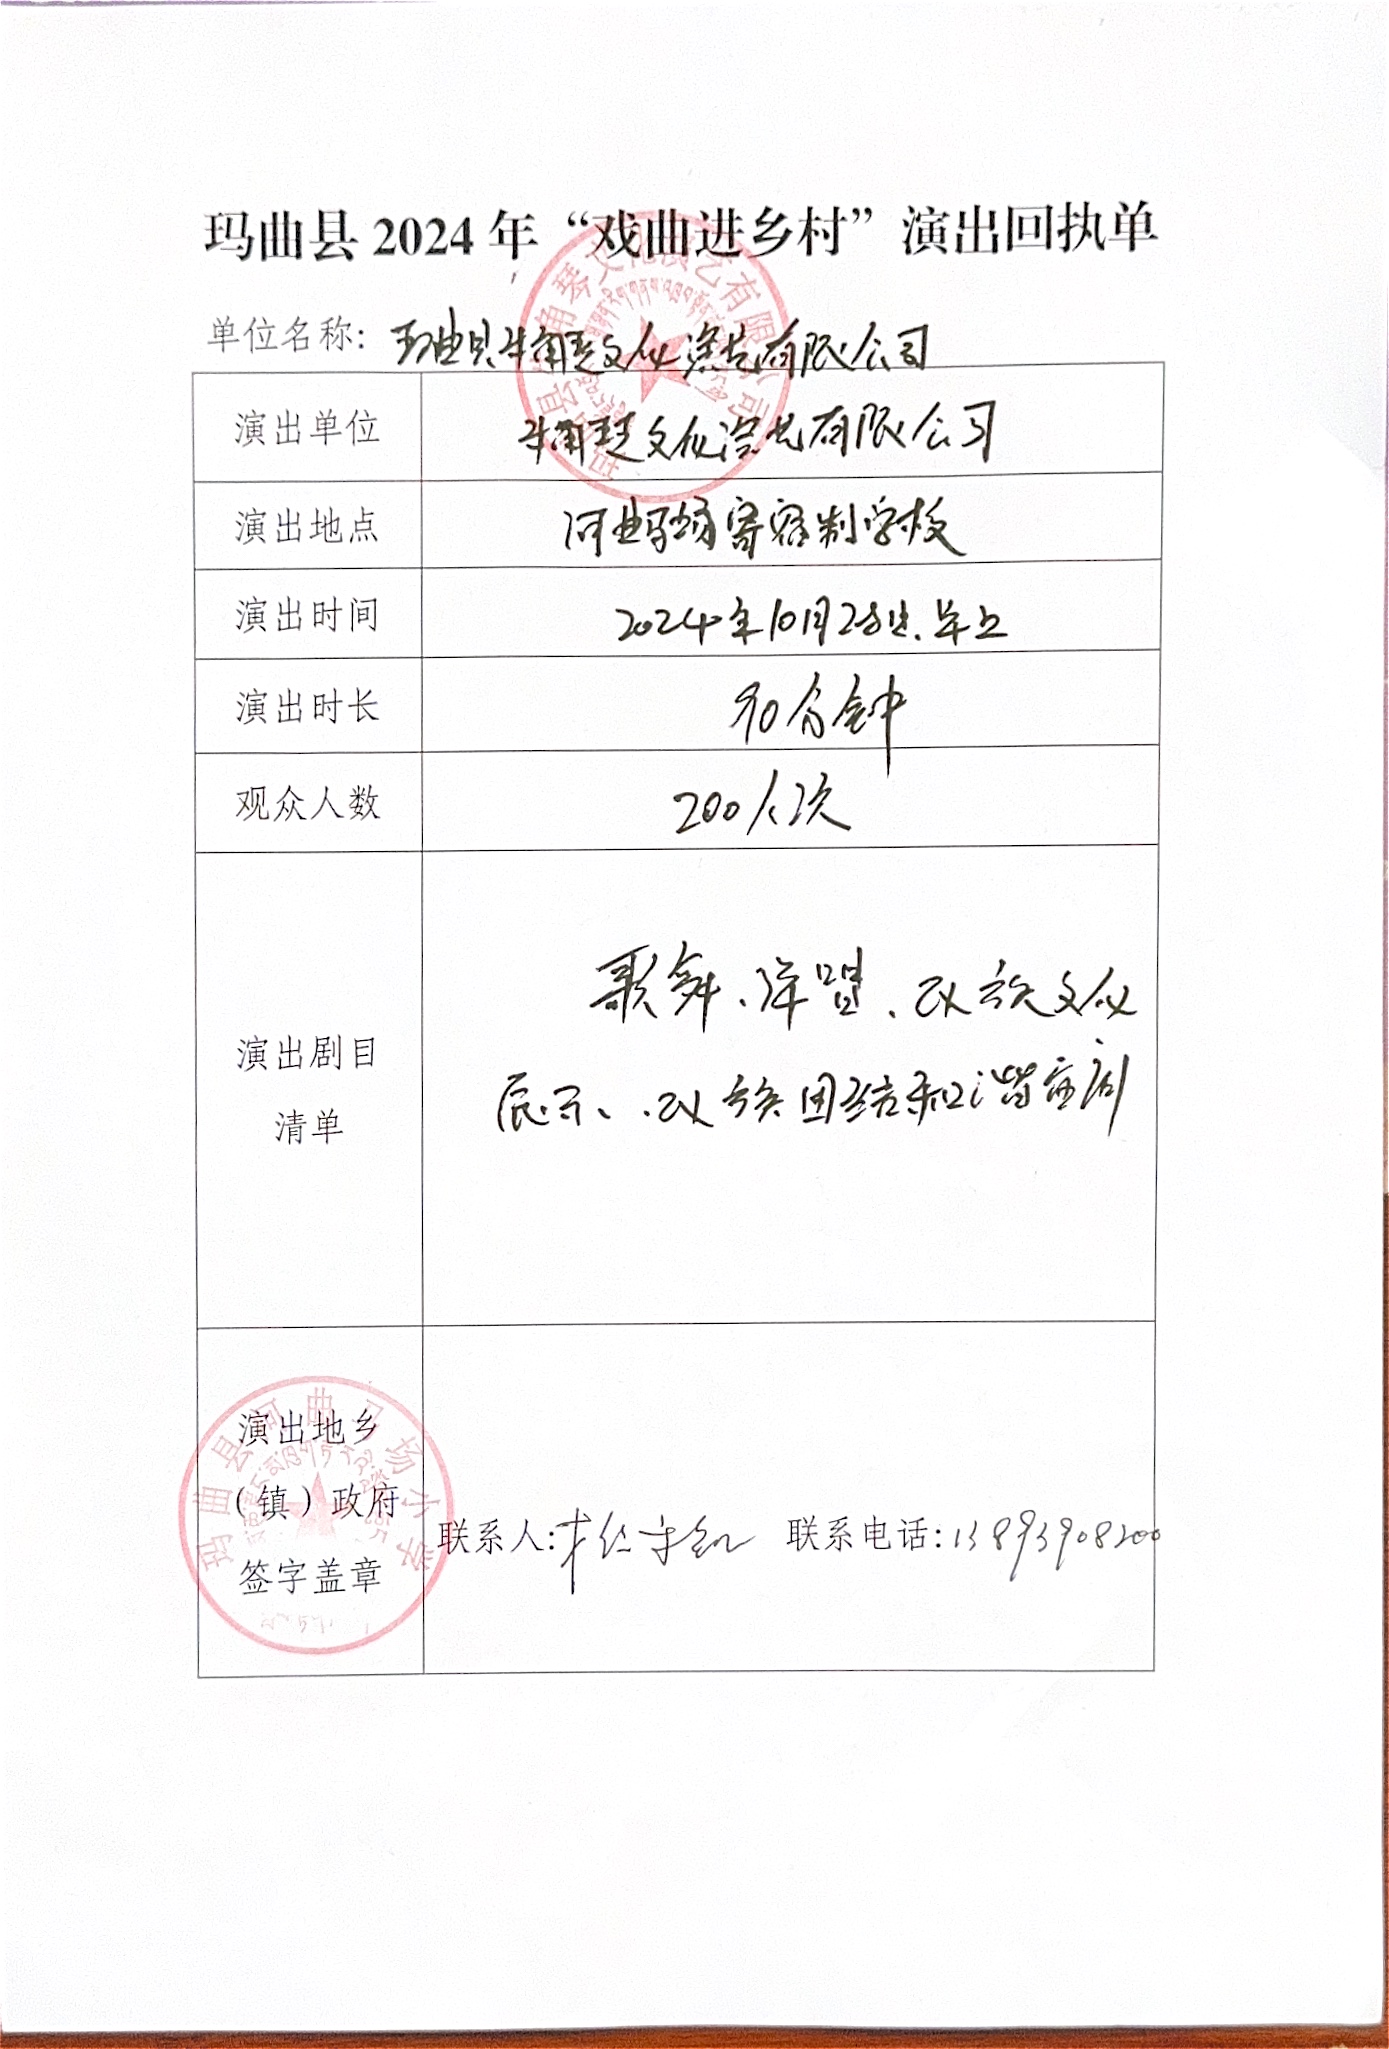 玛曲县2024年“戏曲进乡村”演出回执单
单位名称: 玛曲县牛角琴文化演艺有限公司
演出单位 牛角琴文化演艺有限公司
演出地点 河曲马场寄宿制学校
演出时间 2024年10月28日
演出时长 90分钟
观众人数 200人次
歌舞、弹唱、民族文化
演出剧目
展示、民族团结和谐
清单
演出地乡
（镇）政府
联系人: 联系电话: 13893908200
签字盖章
玛曲县河曲马场小学